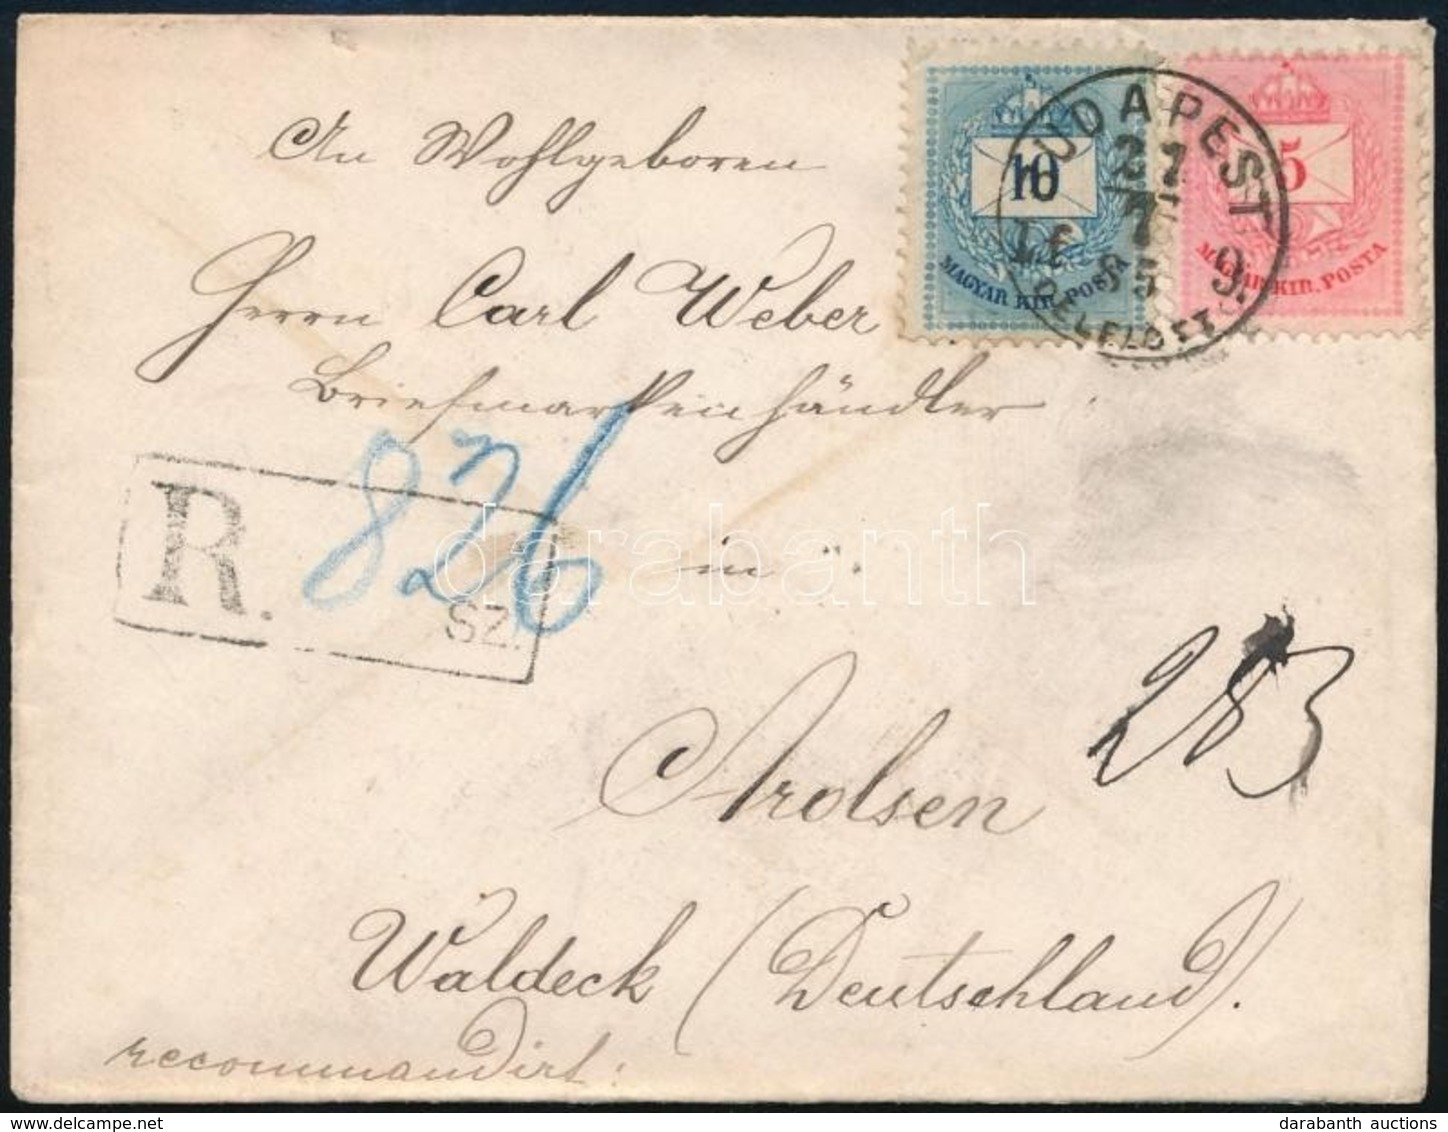 An Wohlgeboren
Herrn Carl Weber
Briefmarkenhändler
in
Arolsen
Waldeck (Deutschland).
recommandirt:
10
MAGYAR KIR. POSTA
5
MAGYAR KIR. POSTA
BUDAPEST
27
7
85
R.
826
SZ.
283
darabanth
darabanth auctions